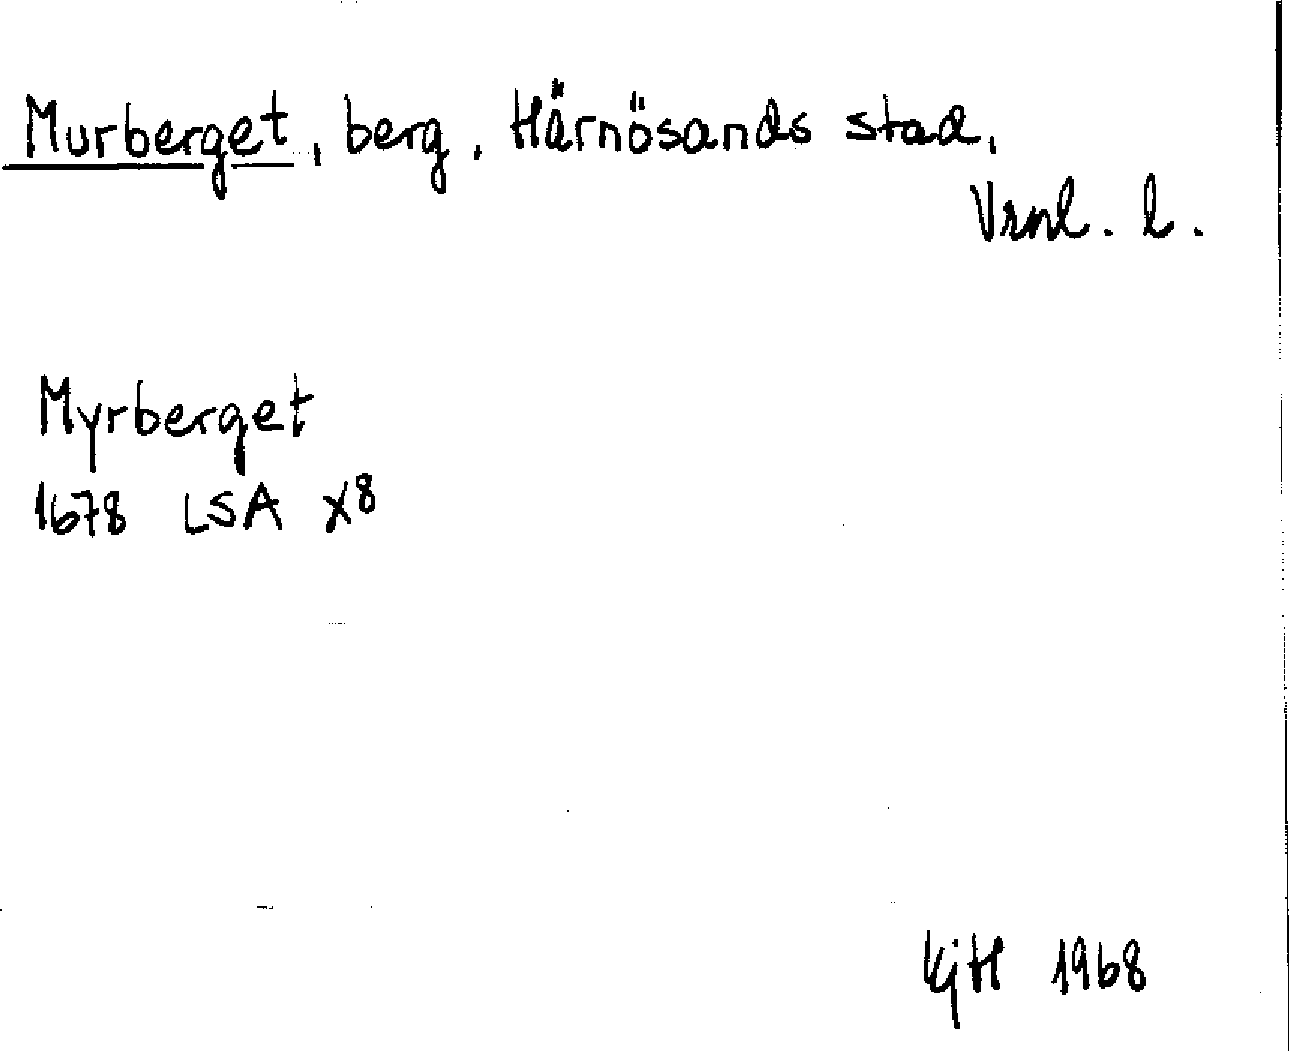 Murberget, berg, Härnösands stad,
Vrnl. l.
Myrberget
1678 LSA X8
KjH 1968